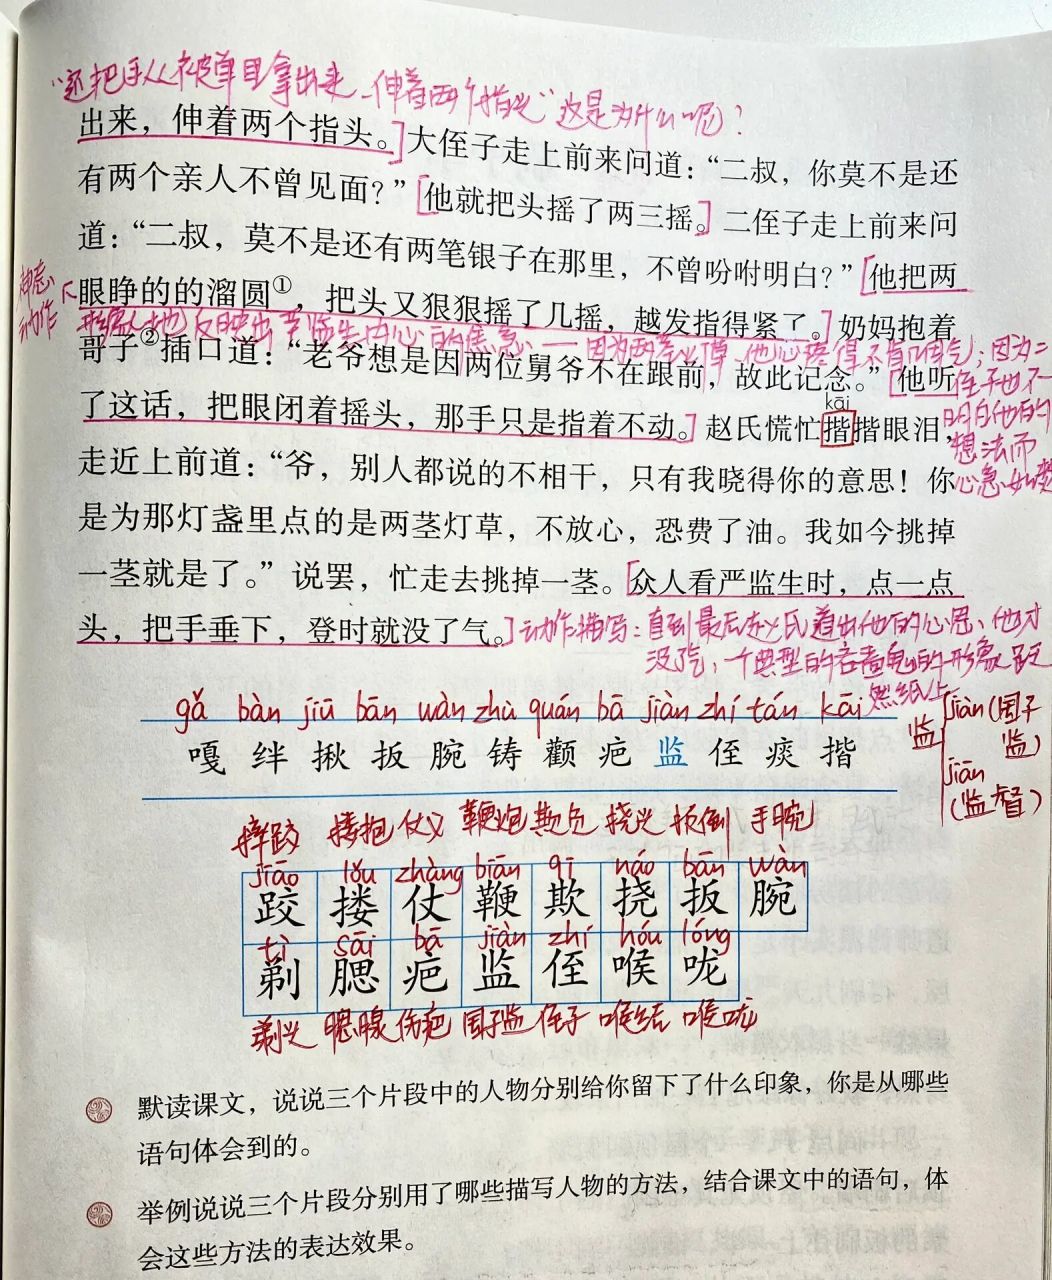 “还把手从被单里拿出来，伸着两个指头”这是为什么呢？
出来，伸着两个指头。]大侄子走上前来问道：“二叔，你莫不是还
有两个亲人不曾见面？”[他就把头摇了两三摇。]二侄子走上前来问
道：“二叔，莫不是还有两笔银子在那里，不曾吩咐明白？”[他把两
神态、动作
眼睁的的溜圆①，把头又狠狠摇了几摇，越发指得紧了。]奶妈抱着
形象地反映出严监生内心的焦急，——因为两茎灯草，他心疼得不肯咽气；因为二
哥子②插口道：“老爷想是因两位舅爷不在跟前，故此记念。”[他听
侄子也不
kāi
了这话，把眼闭着摇头，那手只是指着不动。]赵氏慌忙揩揩眼泪，
明白他的
想法而
走近上前道：“爷，别人都说的不相干，只有我晓得你的意思！你
心急如焚
是为那灯盏里点的是两茎灯草，不放心，恐费了油。我如今挑掉
一茎就是了。”说罢，忙走去挑掉一茎。[众人看严监生时，点一点
头，把手垂下，登时就没了气。]动作描写：直到最后赵氏道出他的心思，他才
没了气，一个典型的吝啬鬼的形象跃
然纸上
gǎ bàn jiū bān wàn zhù quán bā jiàn zhí tán kāi
嘎 绊 揪 扳 腕 铸 颧 疤 监 侄 痰 揩
监 jiàn（国子监）
jiān（监督）
摔跤 搂抱 仗义 鞭炮 欺负 挠头 扳倒 手腕
jiāo lǒu zhàng biān qī náo bān wàn
跤 搂 仗 鞭 欺 挠 扳 腕
tì sāi bā jiàn zhí hóu lóng
剃 腮 疤 监 侄 喉 咙
剃头 腮腺 伤疤 国子监 侄子 喉结 喉咙
默读课文，说说三个片段中的人物分别给你留下了什么印象，你是从哪些
语句体会到的。
举例说说三个片段分别用了哪些描写人物的方法，结合课文中的语句，体
会这些方法的表达效果。